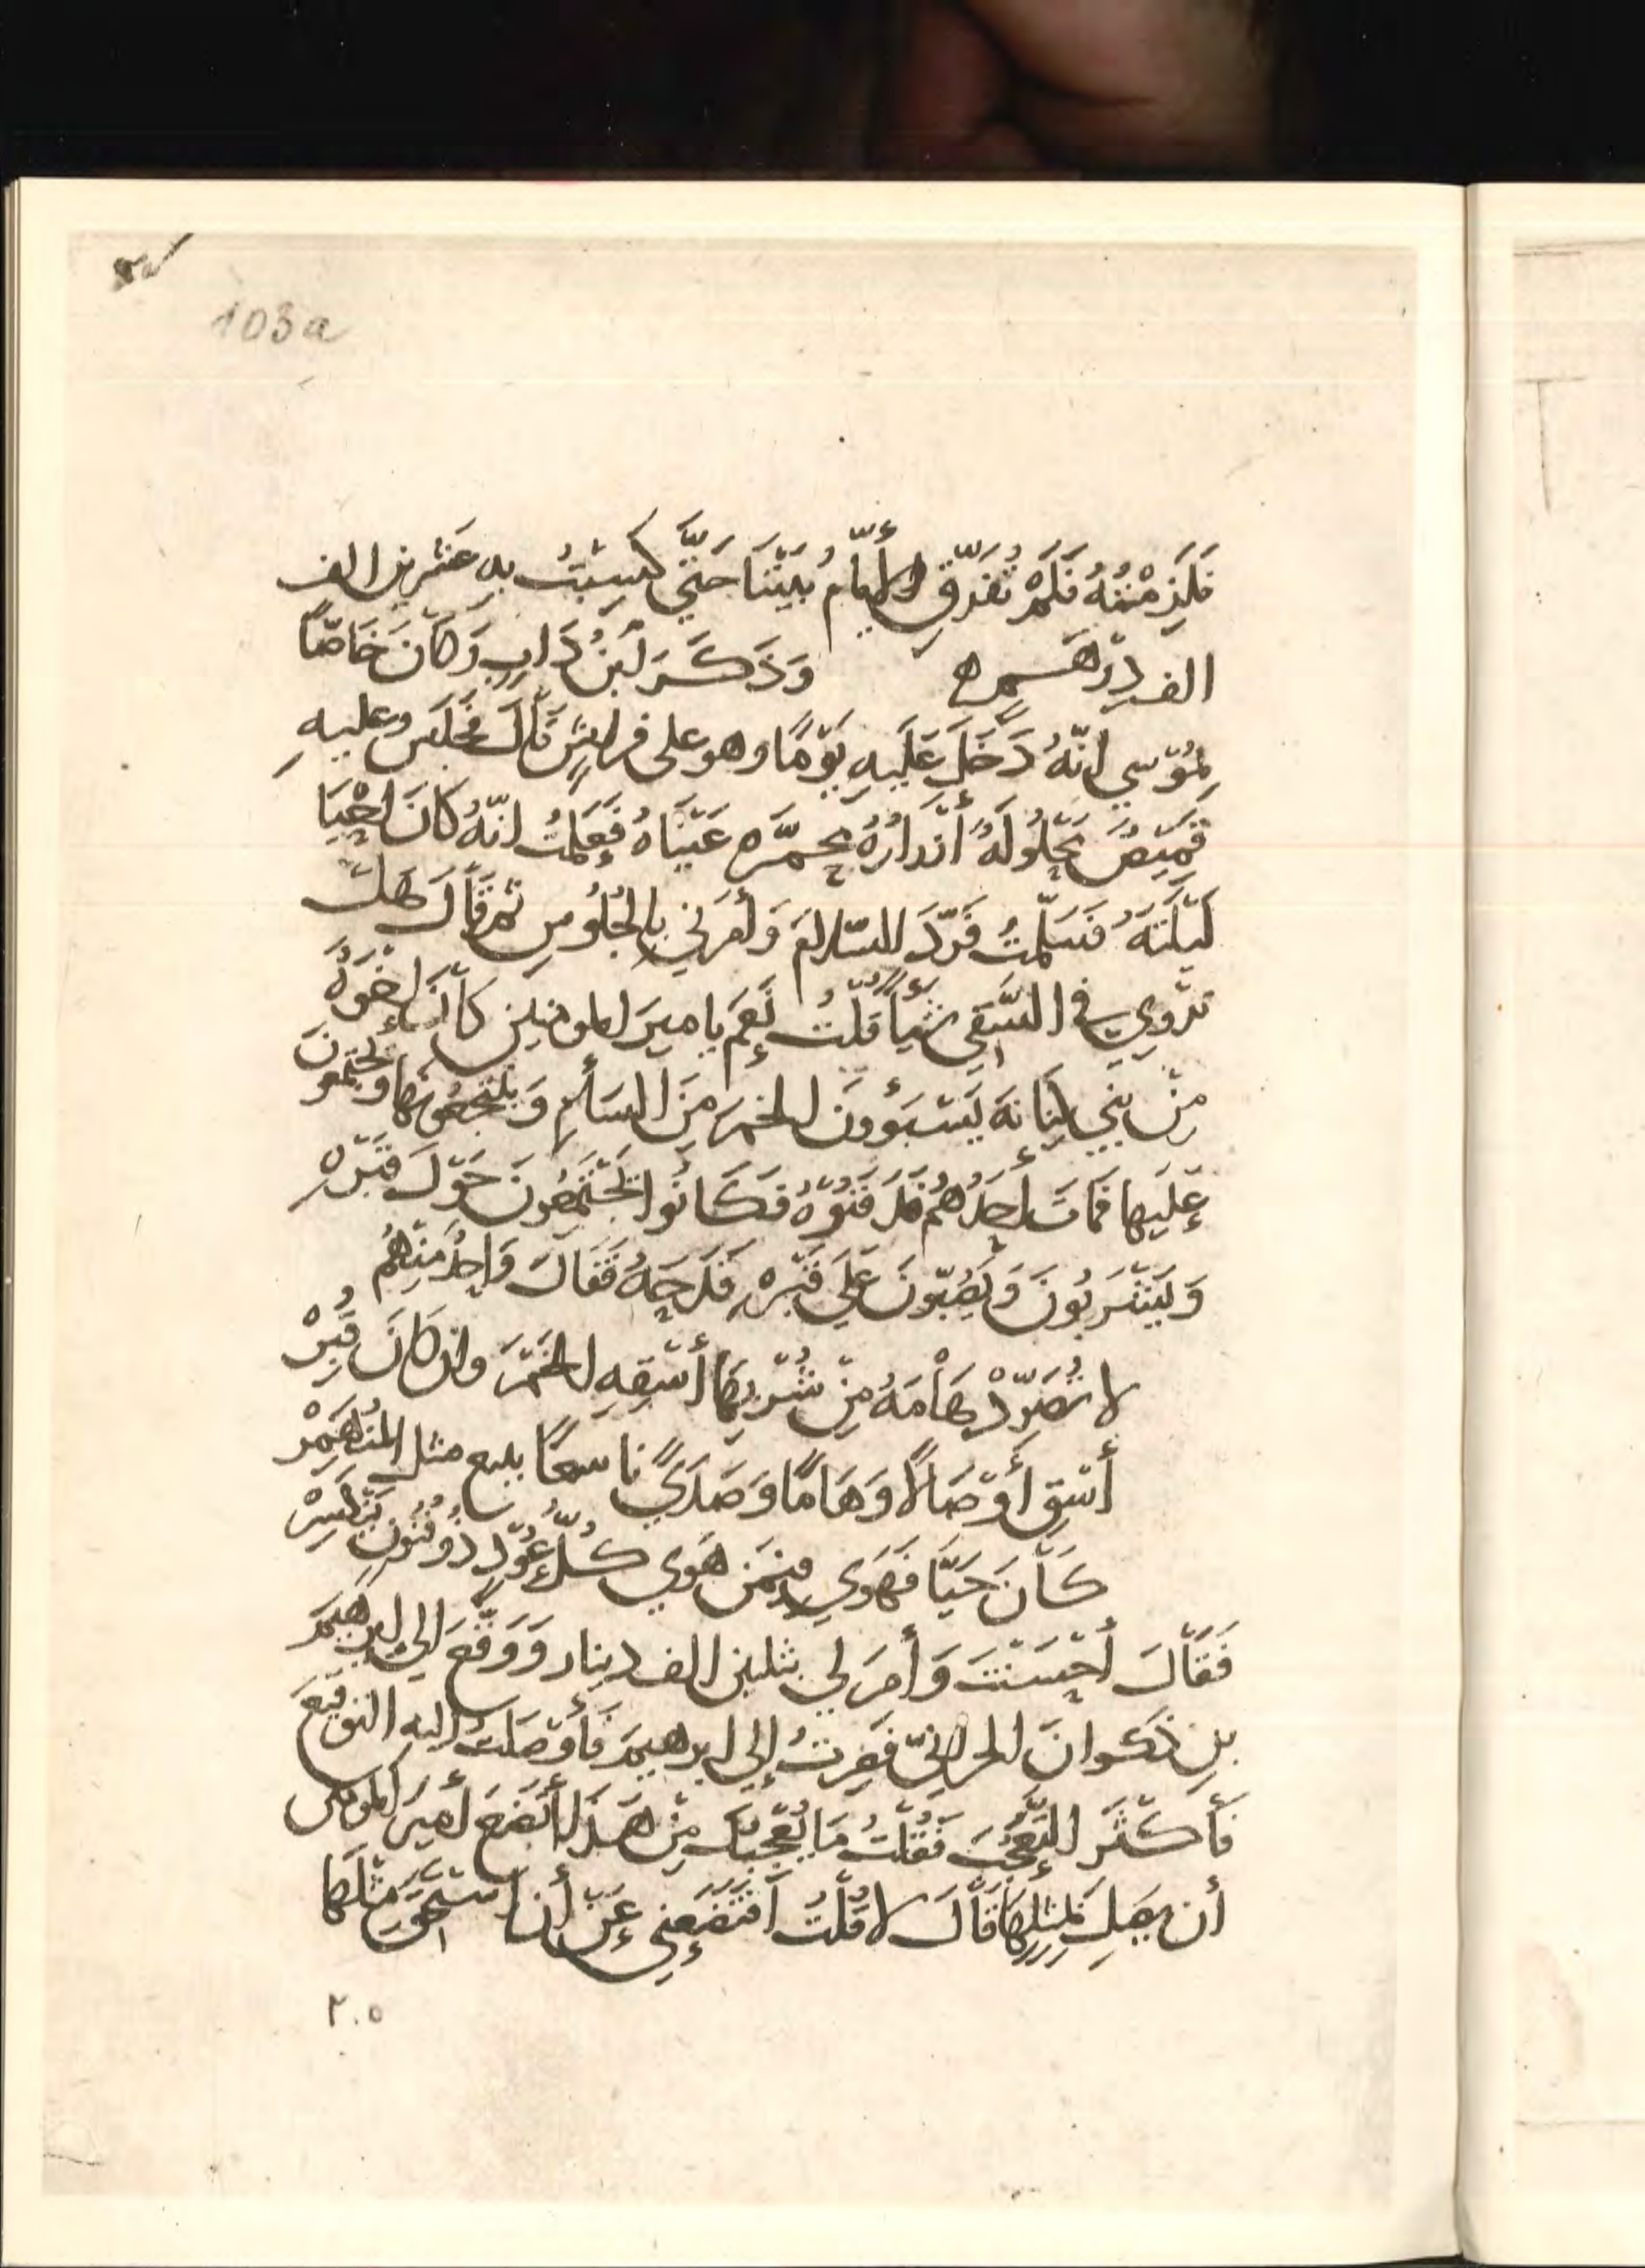 103a
فَلَزِمْتُهُ فَلَمْ تُفَرِّقِ الأيّامُ بَيْنَنَا حَتَّي كَسِبْتُ بِهِ عشرين الف
الف دِرْهَمٍ ه وَذَكَرَ ابنُ دَابٍ وَكَانَ خَاصّاً
بمُوْسي انّهُ دَخَلَ عَلَيهِ يَوْمًا وهو على فراشٍ قَالَ فجَلَسَ وعليهِ
قَمِيْصٌ مَحْلُولَهٌ أَزْرَارُهُ مُحمَرَّه عَيْنَاهُ فَعَلِمْتُ انّهُ كَانَ احْيَا
لَيْلَتَهُ فَسَلَّمْتُ فَرَدَّ السّلامَ وَأمَرَني بالجُلُوسِ ثمّ قَالَ هَلْ
تَرْوِي في السَّقي شَيْأً قُلْتُ نَعَم يا ميرَ المومنين كَأنَ إخْوَةٌ
مِنْ بَنِي كِنَانهَ يَسْبَؤُونَ الخمرَ مِنَ الشأمِ وَيجتمعونَ
عَلَيها فمَاتَ أحَدُهُمْ فَدَفَنُوْهُ فكَانُوا يَجْتَمِعُونَ حَوْلَ قَبْرِهِ
وَيَشْرَبُونَ وَيَصُبّونَ عَلي قَبْرِهِ قَدَحَهُ فَقَالَ وَاحِدٌ مِنْهُم
لا تُصَرِّدْ هَامَهً مِنْ شُرْبِهَا أسْقِهِ الخَمْرَ وان كَانَ قُبِرْ
أسْقِ أوْصَالًا وَهَامًا وَصَدَيً
كَانَ حَيَّا فَهَوَي فيمَن هَوَي كُلُّ عُوْدٍ ذُو فُنُونٍ يَنْكَسِرْ
فَقَالَ أحْسَنْتَ وَأمَرَ لي بثلثين الف دينار وَوَقَّعَ الي ابرهيمَ
بنِ ذَكوانَ الحرانيّ فَصِرتُ إلي ابرهيمَ فَأوْصَلتُ إليهِ التوقيعَ
فَأكْثَرَ التَّعَجُّبَ فَقُلْتُ مَا يُعْجِبُكَ مِنْ هَذَا أتَضَعَ أميرَ المومنين
أن يَصِلَ بمثلِها قَالَ لا قُلْتُ أفَتَضَعُني عَنْ أن أستَحِقَّ مثلَهَا
٢٠٥